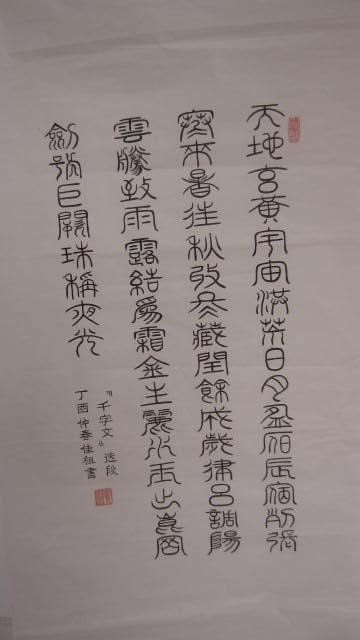 天地玄黃宇宙洪荒日月盈昃辰宿列張
寒來暑往秋收冬藏閏餘成歲律呂調陽
雲騰致雨露結為霜金生麗水玉出崑岡
劍號巨闕珠稱夜光
“千字文”选段
丁酉仲春佳祖書